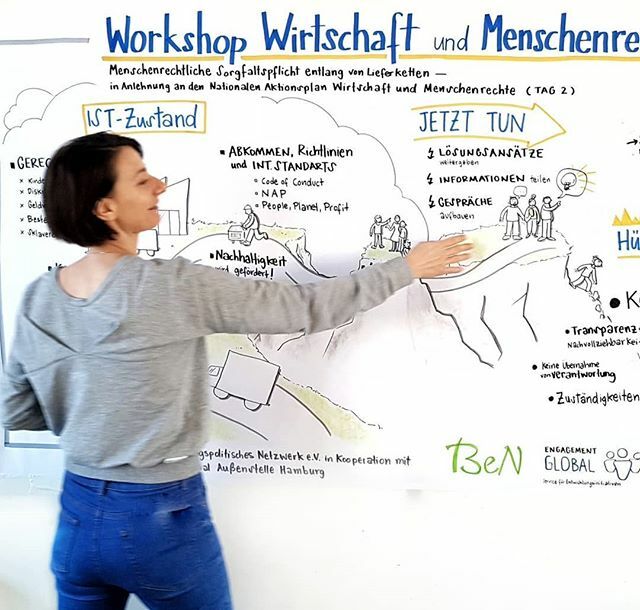 Workshop Wirtschaft und Menschenre
Menschenrechtliche Sorgfaltspflicht entlang von Lieferketten —
in Anlehnung an den Nationalen Aktionsplan Wirtschaft und Menschenrechte (TAG 2)
IST-Zustand
• GEREC
x Kinde
x Disk
x Geld
x Beste
x Sklavere
• ABKOMMEN, Richtlinien
und INT. STANDARTS
◦ Code of Conduct
◦ NAP
◦ People, Planet, Profit
• Nachhaltigkeit
wird gefördert!
JETZT TUN
LÖSUNGSANSÄTZE
weitergeben
INFORMATIONEN teilen
GESPRÄCHE
aufbauen
Hü
• K
• Transparenz
Nachvollziehbarkei
• Keine Übernahme
von Verantwortung
• Zuständigkeiten
gspolitisches Netzwerk e.V. in Kooperation mit
al Außenstelle Hamburg
BeN
ENGAGEMENT
GLOBAL
Service für Entwicklungsinitiativen